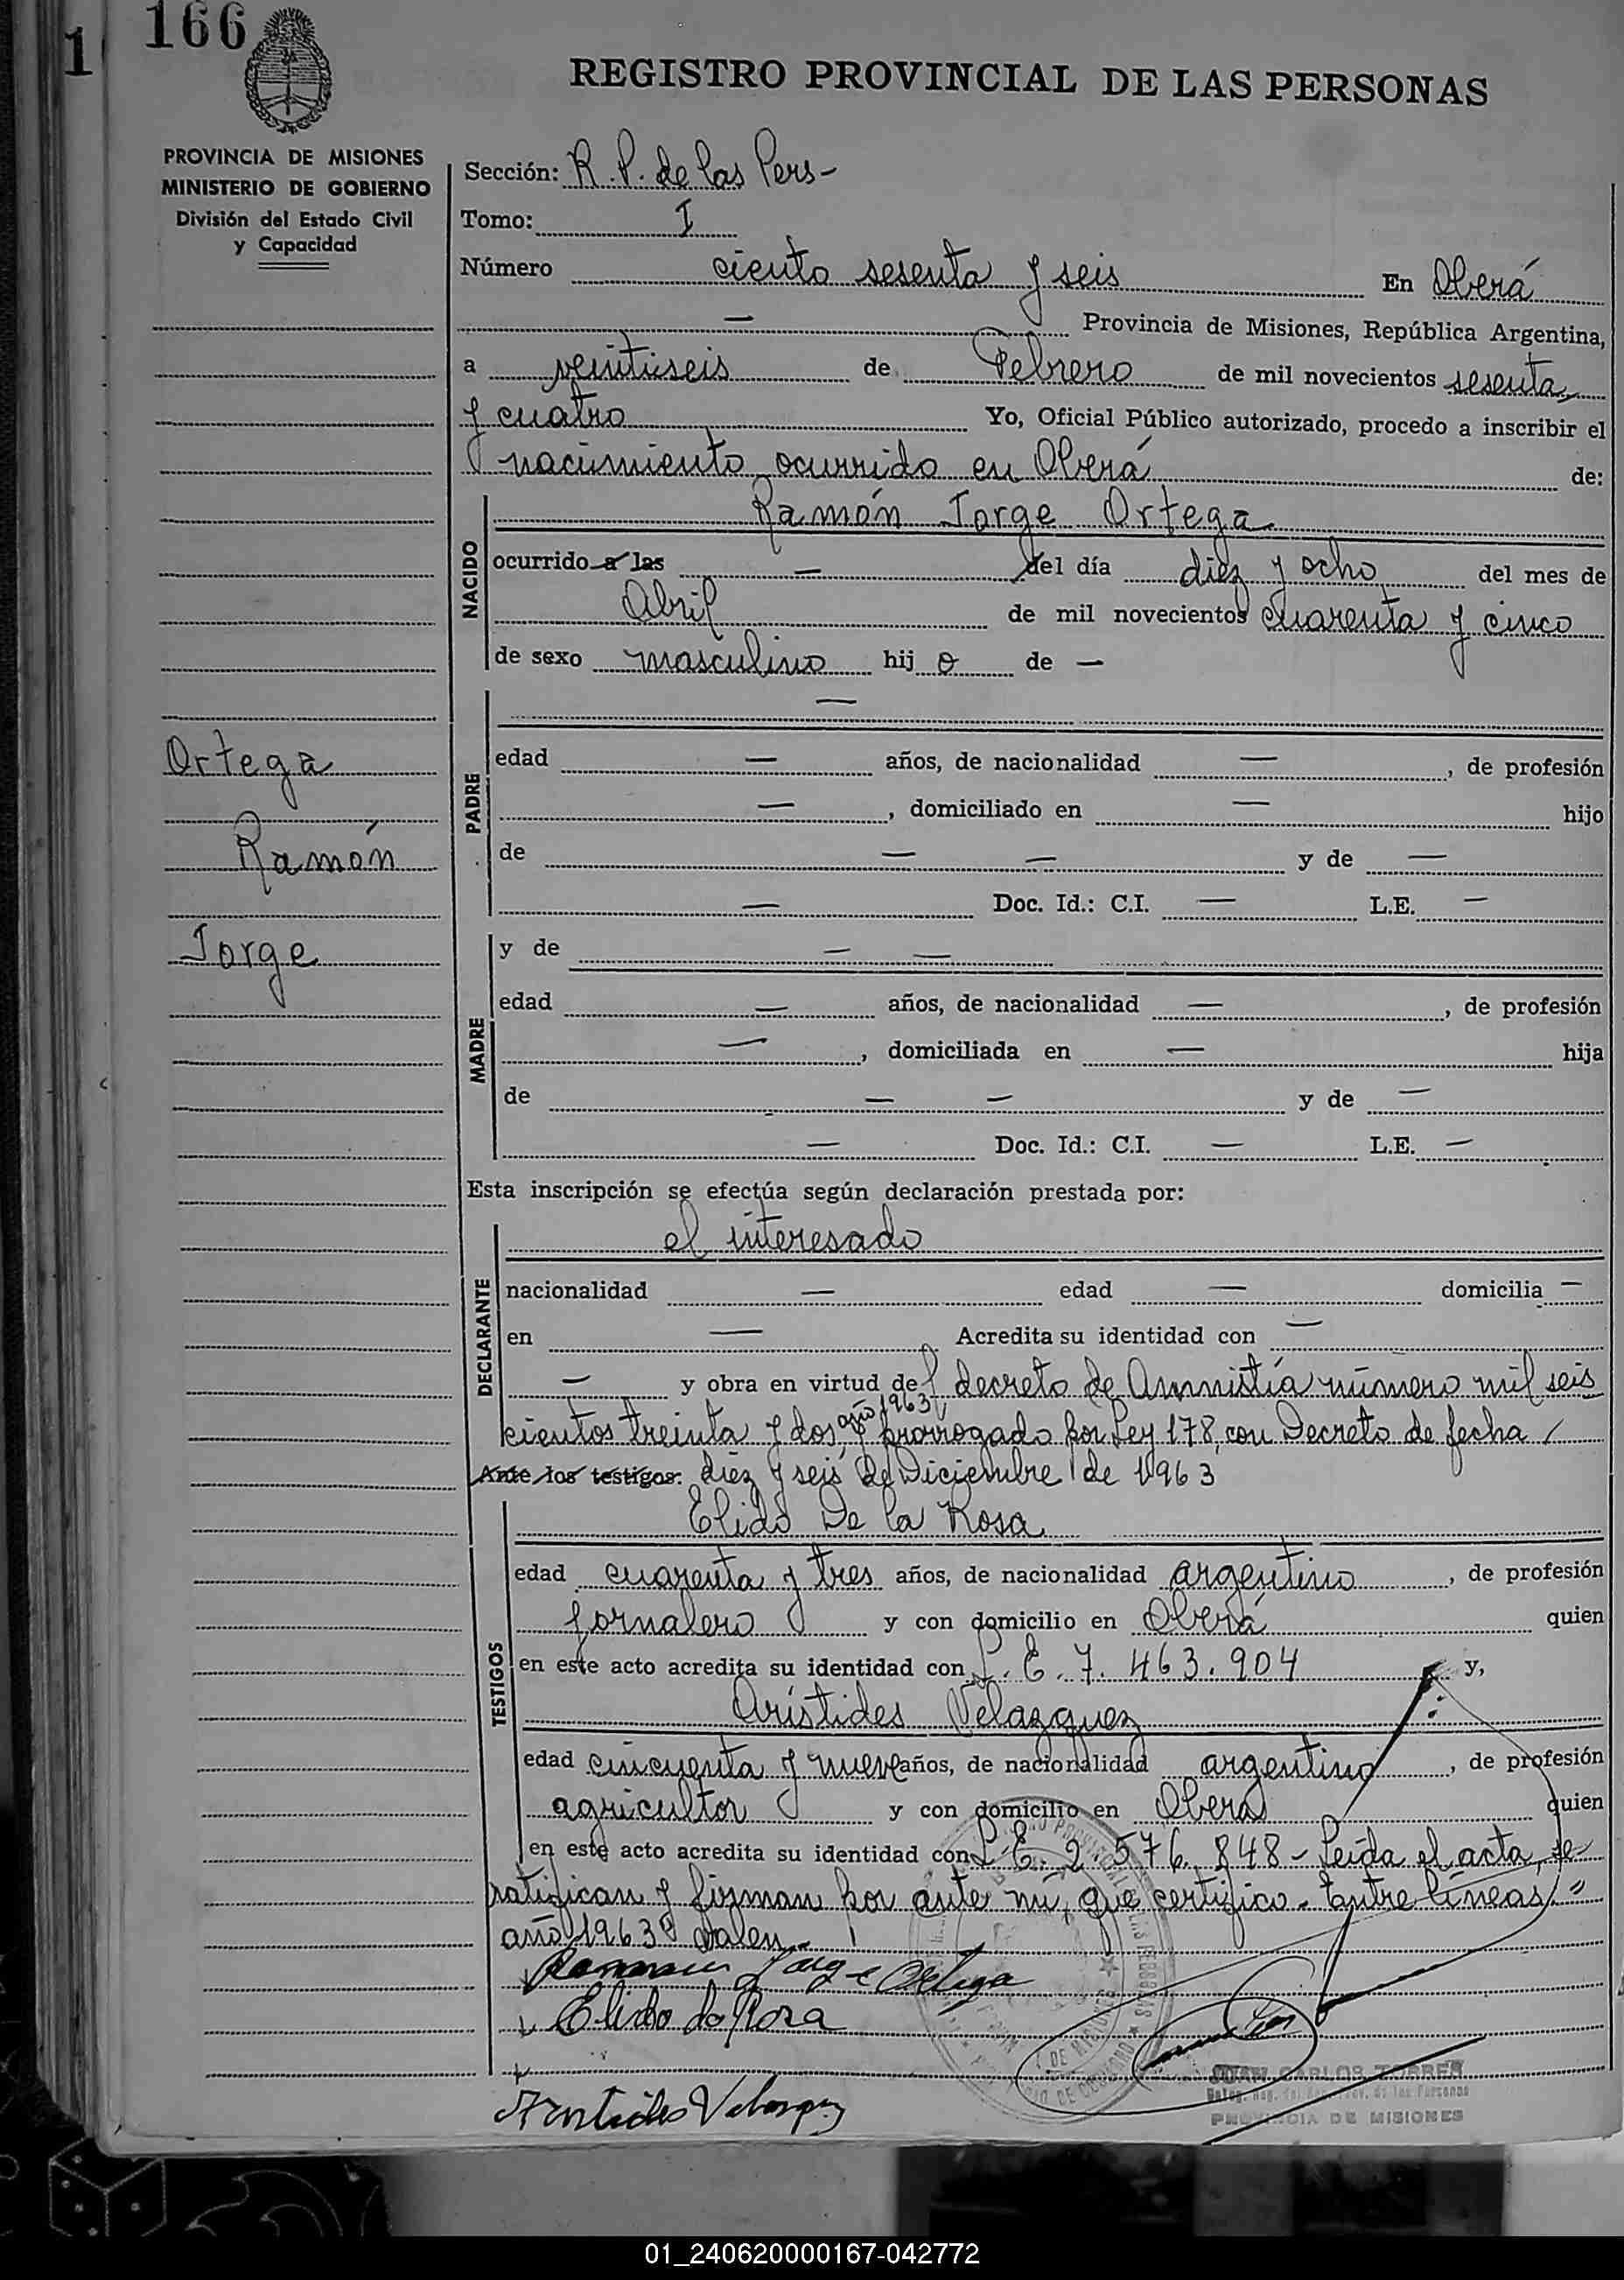 1
166
REGISTRO PROVINCIAL DE LAS PERSONAS
PROVINCIA DE MISIONES
MINISTERIO DE GOBIERNO
División del Estado Civil
y Capacidad
Sección: R. P. de las Pers-
Tomo: I
Número ciento sesenta y seis En Oberá
— Provincia de Misiones, República Argentina,
a veintiseis de Febrero de mil novecientos sesenta
y cuatro Yo, Oficial Público autorizado, procedo a inscribir el
nacimiento ocurrido en Oberá de:
NACIDO
Ramón Jorge Ortega
ocurrido a las — del día diez y ocho del mes de
Abril de mil novecientos cuarenta y cinco
de sexo masculino hijo de —
—
Ortega
Ramón
Jorge
PADRE
edad — años, de nacionalidad —, de profesión
—, domiciliado en — hijo
de — — y de —
— Doc. Id.: C.I. — L.E. —
MADRE
y de — —
edad — años, de nacionalidad —, de profesión
—, domiciliada en — hija
de — — y de —
— Doc. Id.: C.I. — L.E. —
Esta inscripción se efectúa según declaración prestada por:
DECLARANTE
el interesado
nacionalidad — edad — domicilia —
en — Acredita su identidad con —
— y obra en virtud del decreto de Amnistía número mil seis
cientos treinta y dos, año 1963, y prorrogado por Ley 178, con Decreto de fecha
Ante los testigos: diez y seis de Diciembre de 1963
TESTIGOS
Elido De la Rosa
edad cuarenta y tres años, de nacionalidad argentino, de profesión
jornalero y con domicilio en Oberá quien
en este acto acredita su identidad con L. E. 7.463.904 y,
Arístides Velazquez
edad cincuenta y nueve años, de nacionalidad argentino, de profesión
agricultor y con domicilio en Oberá quien
en este acto acredita su identidad con L. E. 2.576.848 - Leída el acta, se
ratifican y firman por ante mí, que certifico - Entre líneas: "
año 1963" valen
Ramon Jorge Ortega
Elido da Rosa
Aristides Velazquez
JUAN CARLOS TORRES
PROVINCIA DE MISIONES
01_240620000167-042772